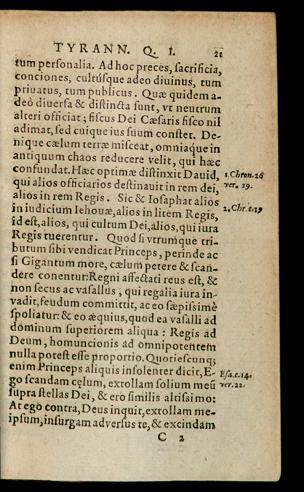 TYRANN. Q. I. 21
tum personalia. Ad hoc preces, sacrificia,
conciones, cultúsque adeo diuinus, tum
priuatus, tum publicus. Quæ quidem a-
deò diuersa & distincta sunt, vt neutrum
alteri officiat; fiscus Dei Cæsaris fisco nil
adimat, sed cuique ius suum constet. De-
nique cælum terræ misceat, omniaque in
antiquum chaos reducere velit, qui hæc
confundat. Hæc optimæ distinxit Dauid,
1. Chron. 26
qui alios officiarios destinauit in rem dei,
ver. 29.
alios in rem Regis. Sic & Iosaphat alios
in iudicium Iehouæ, alios in litem Regis,
2. Chr. c. 19
id est, alios, qui cultum Dei, alios, qui iura
Regis tuerentur. Quod si vtrumque tri-
butum sibi vendicat Princeps, perinde ac
si Gigantum more, cælum petere & scan-
dere conentur: Regni affectati reus est, &
non secus ac vasallus, qui regalia iura in-
vadit, feudum committit, ac eo sæpissimè
spoliatur: & eo æquius, quod ea vasalli ad
dominum superiorem aliqua: Regis ad
Deum, homuncionis ad omnipotentem
nulla potest esse proportio. Quoriescunq;
enim Princeps aliquis insolenter dicit, E-
Esa. c. 14.
go scandam cęlum, extollam solium meũ
ver. 22.
supra stellas Dei, & ero similis altissimo:
At ego contra, Deus inquit, extollam me-
ipsum, insurgam adversus te, & excindam
C 2